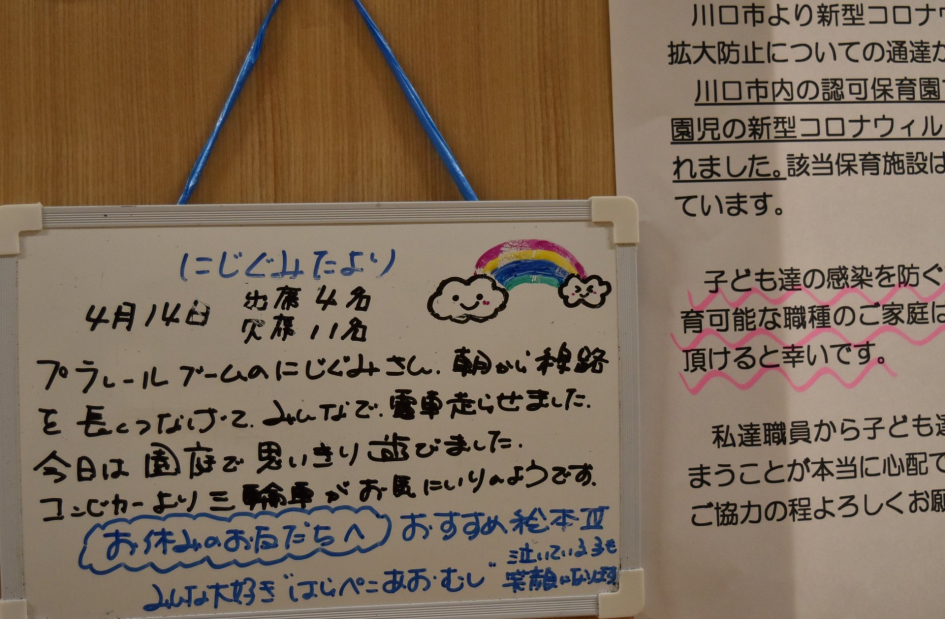 にじぐみたより
4月14日
出席 4名
欠席 11名
プラレールブームのにじぐみさん。朝から線路
を長くつなげて、みんなで、電車走らせました。
今日は園庭で思いきり遊びました。
コンビカーより三輪車がお気にいりのようです。
お休みのお友だちへ おすすめ絵本Ⅳ
泣いている子も
みんな大好き"はらぺこあおむし" 笑顔になります
川口市より新型コロナウ
拡大防止についての通達が
川口市内の認可保育園
園児の新型コロナウィル
れました。該当保育施設は
ています。
子ども達の感染を防ぐ
育可能な職種のご家庭は
頂けると幸いです。
私達職員から子ども達
まうことが本当に心配で
ご協力の程よろしくお願